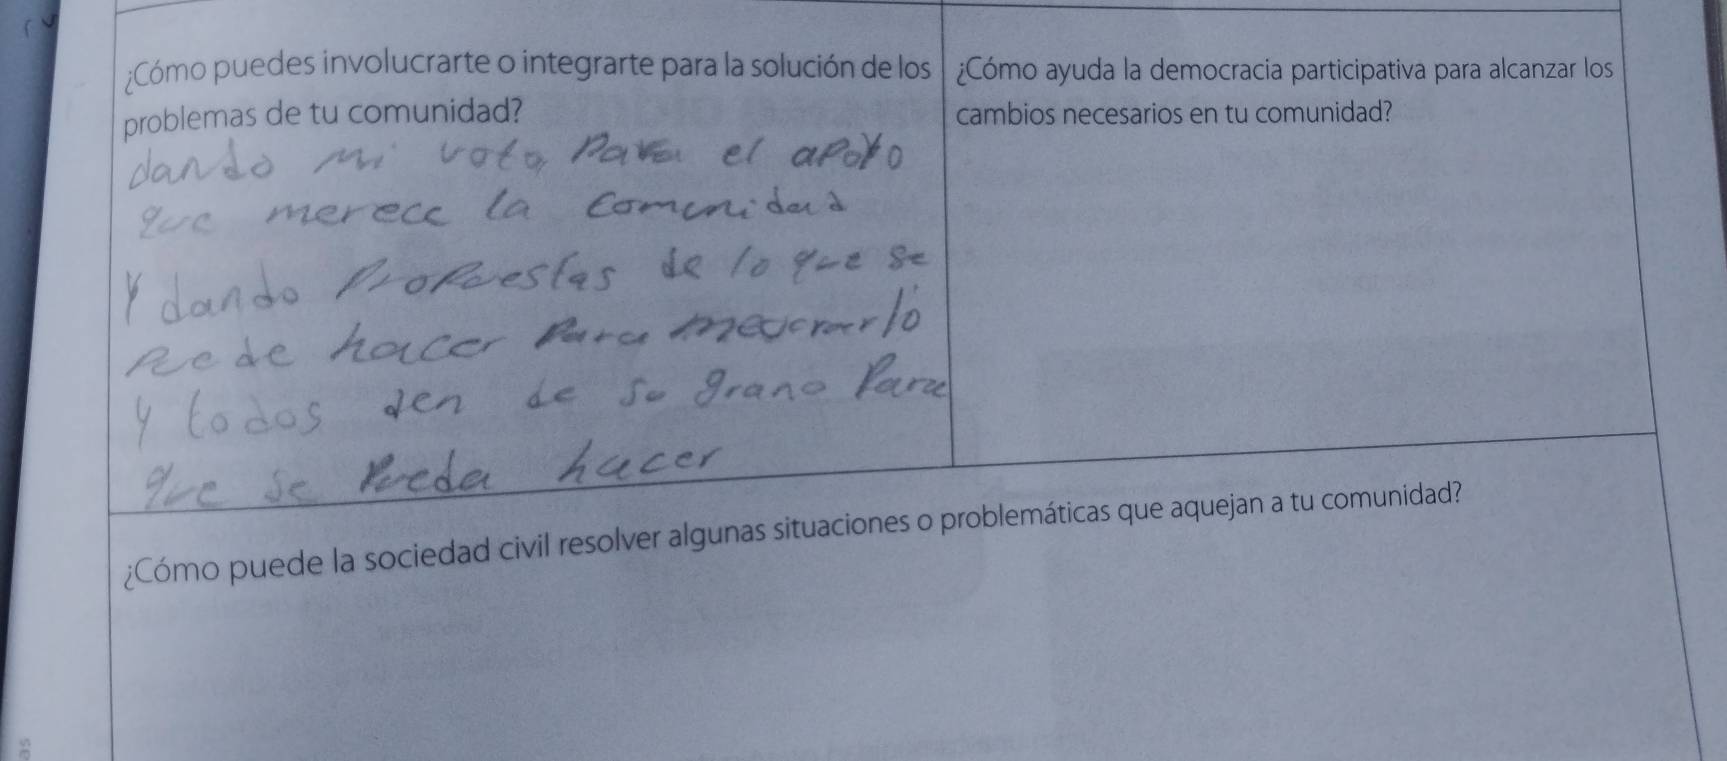 ¿Cómo puedes involucrarte o integrarte para la solución de los
problemas de tu comunidad?
dando mi voto para el apoyo
que merece la comunidad
Y dando Propuestas de lo que se
puede hacer para mejorarlo
y todos den de su grano Para
que se pueda hacer
¿Cómo ayuda la democracia participativa para alcanzar los
cambios necesarios en tu comunidad?
¿Cómo puede la sociedad civil resolver algunas situaciones o problemáticas que aquejan a tu comunidad?
as